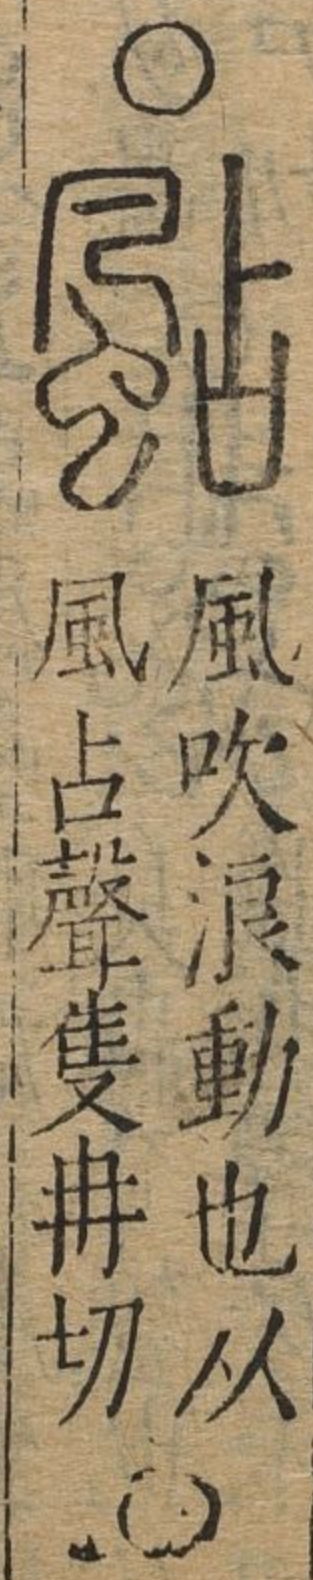 颭
風吹浪動也从
風占聲隻冄切